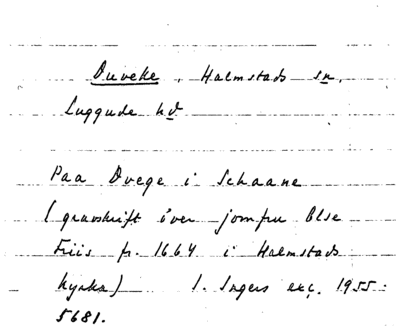 Duveke, Halmstads sn,
Luggude hd
Paa Dvege i Schaane
(gravskrift över jomfru Else
Friis fr. 1664 i Halmstads
kyrka) I. Ingers exc. 1955:
5681.